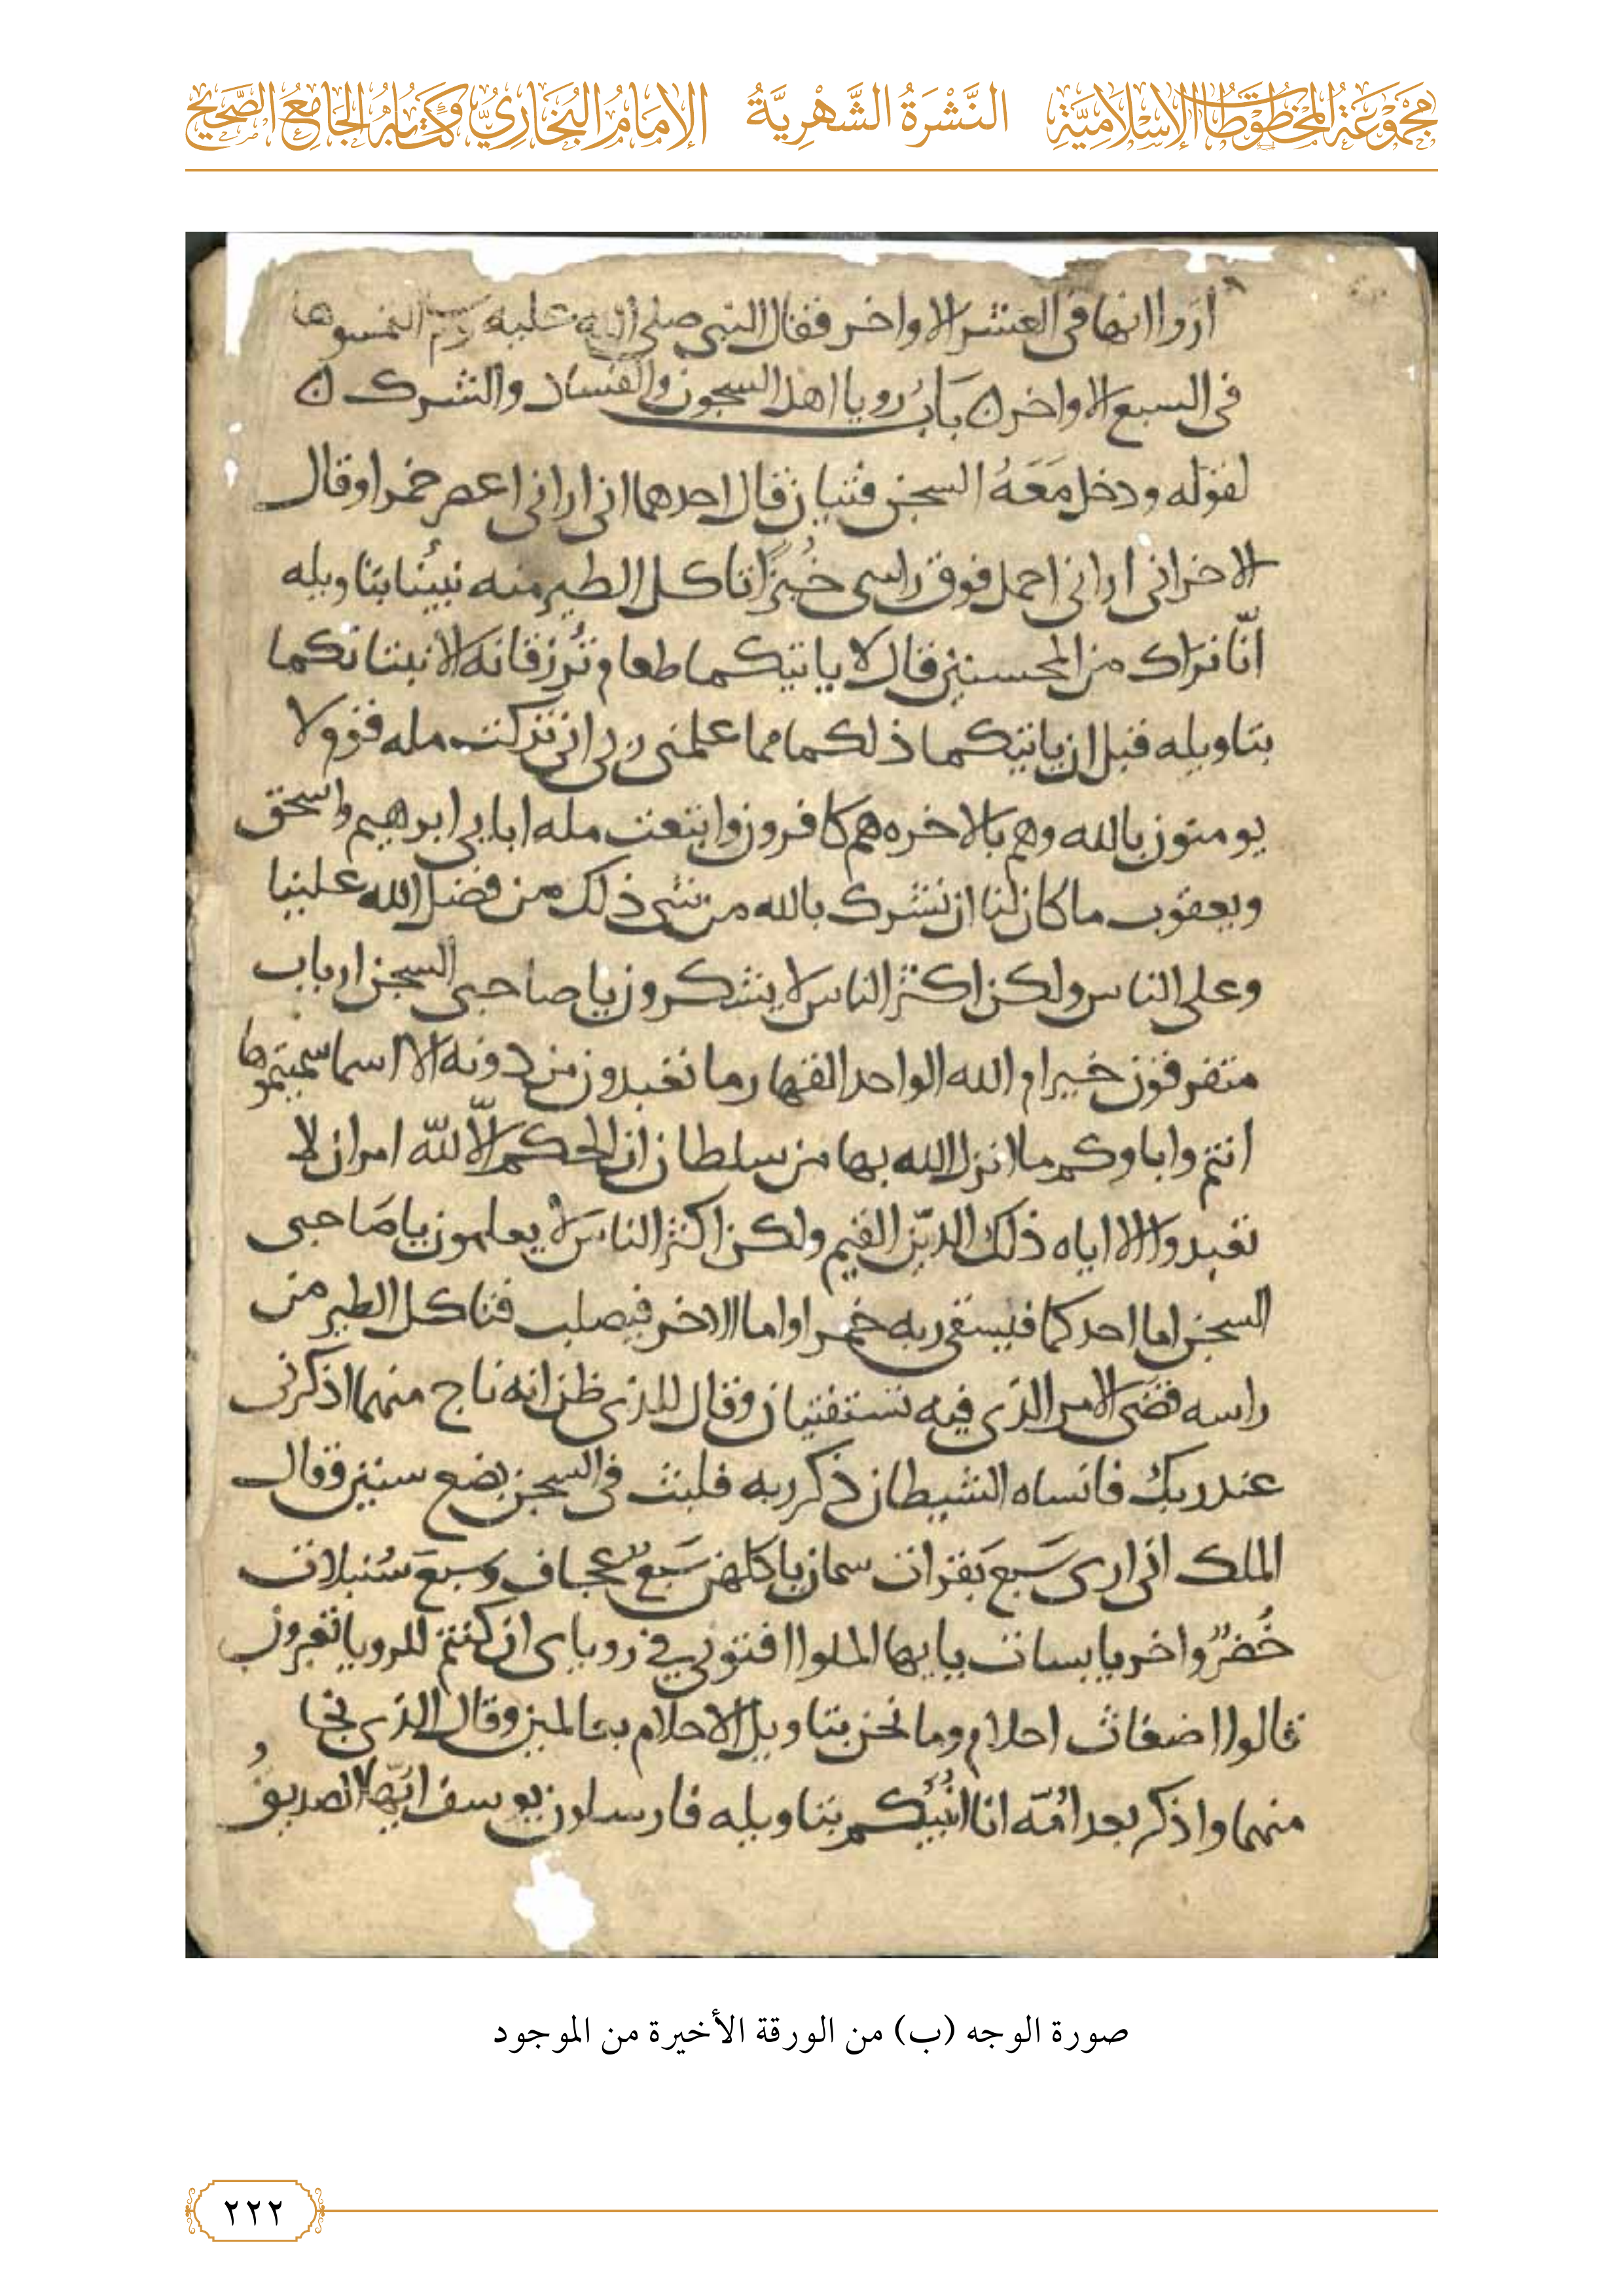 مَجْمُوعَةُ المَخْطُوطَاتِ الإِسْلَامِيَّةِ النَّشْرَةُ الشَّهْرِيَّةُ الإِمَامُ البُخَارِيُّ وَكِتَابُهُ الجَامِعُ الصَّحِيحُ
اروا انها في العشر الاواخر فقال النبي صلى الله عليه التمسوها
في السبع الاواخر ه بَابُ رويا اهل السجون والفساد والشرك ه
لقوله ودخل مَعَهُ السجن فتيان قال احدهما اني اراني اعصر خمرا وقال
الاخر اني اراني احمل فوق راسي خُبزًا تاكل الطير منه نبينُا بتاويله
انّا نراك من المحسنين قال لا ياتيكما طعام تُرزقانه الا نبتاتكما
بتاويله قبل ان ياتيكما ذلكما مما علمني ربي اني تركت مله قوم لا
يومنون بالله وهم بالاخره هم كافرون واتبعت مله ابايي ابرهيم واسحق
ويعقوب ما كان لنا ان نشرك بالله من شي ذلك من فضل الله علينا
وعلى الناس ولكن اكثر الناس لا يشكرون يا صاحبي السجن ارباب
متفرقون خير ام الله الواحد القهار ما تعبدون من دونه الا اسما سميتموها
انتم واباوكم ما انزل الله بها من سلطان ان الحكم الّا للّه امر ان لا
تعبدوا الا اياه ذلك الديّن القيم ولكن اكثر الناسَ لا يعلمون يا صَاحبي
السجن اما احدكما فيسقي ربه خمرا واما الاخر فيصلب فتاكل الطير من
راسه قضي الامر الذي فيه تستفتيان وقال للذي ظن انه ناج منهما اذكرني
عند ربك فانساه الشيطان ذكر ربه فلبث في السجن بضع سنين وقال
الملك اني ارى سَبع بَقرات سمان ياكلهن سَبعٌ عجاف وسبعَ سُنبلات
خُضرٌ واخر يابسات يايها الملوا افتوني في روياي ان كنتم للرويا تعبرون
قالوا اضغاث احلام وما نحن بتاويل الاحلام بعالمين وقال الذي نجا
منهما واذكر بعد امُّه انا انُبيُكم بتاويله فارسلون يوسف ايّها الصديقُ
صورة الوجه (ب) من الورقة الأخيرة من الموجود
٢٢٢